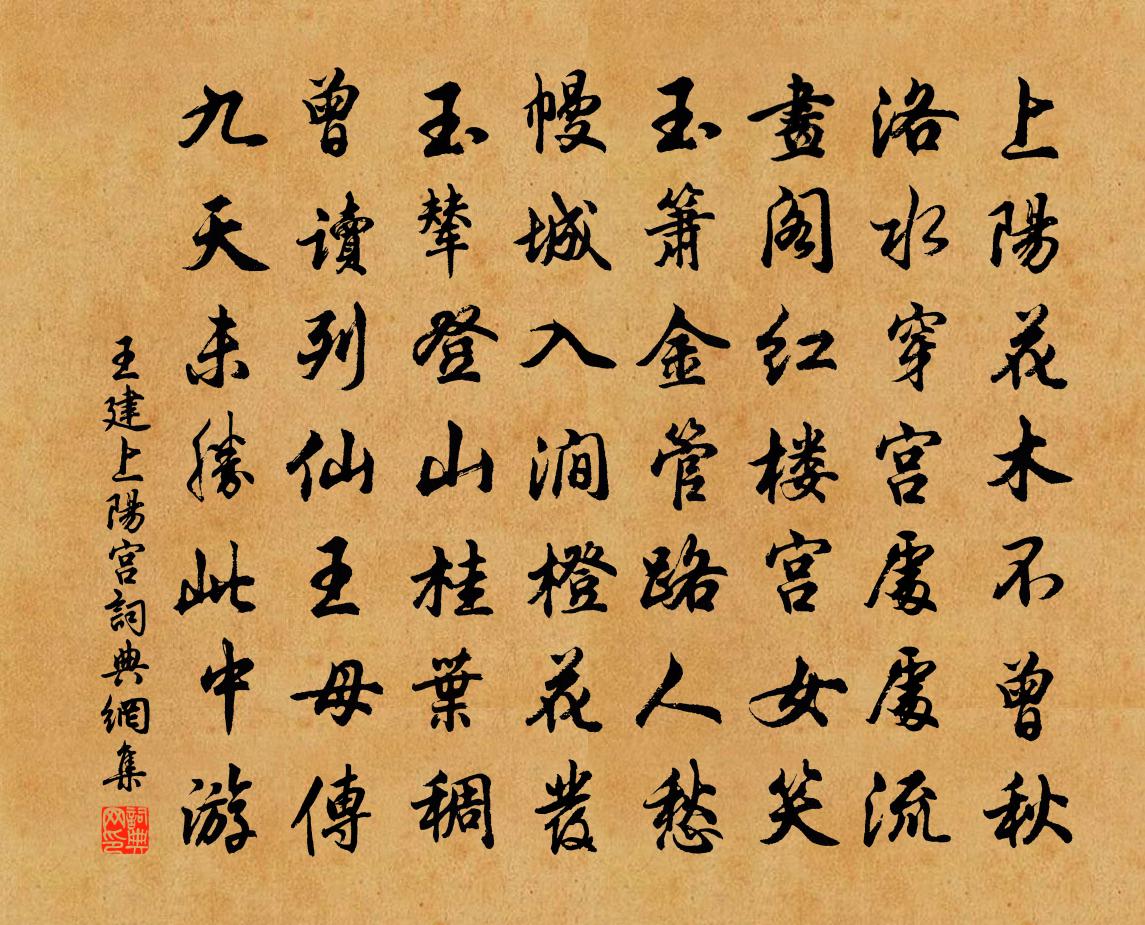 上陽花木不曾秋
洛水穿宮處處流
畫閣红楼宮女笑
玉簫金管路人愁
幔城入澗橙花發
玉輦登山桂葉稠
曾讀列仙王母傳
九天未勝此中游
王建上陽宮詞典網集
詞典网印